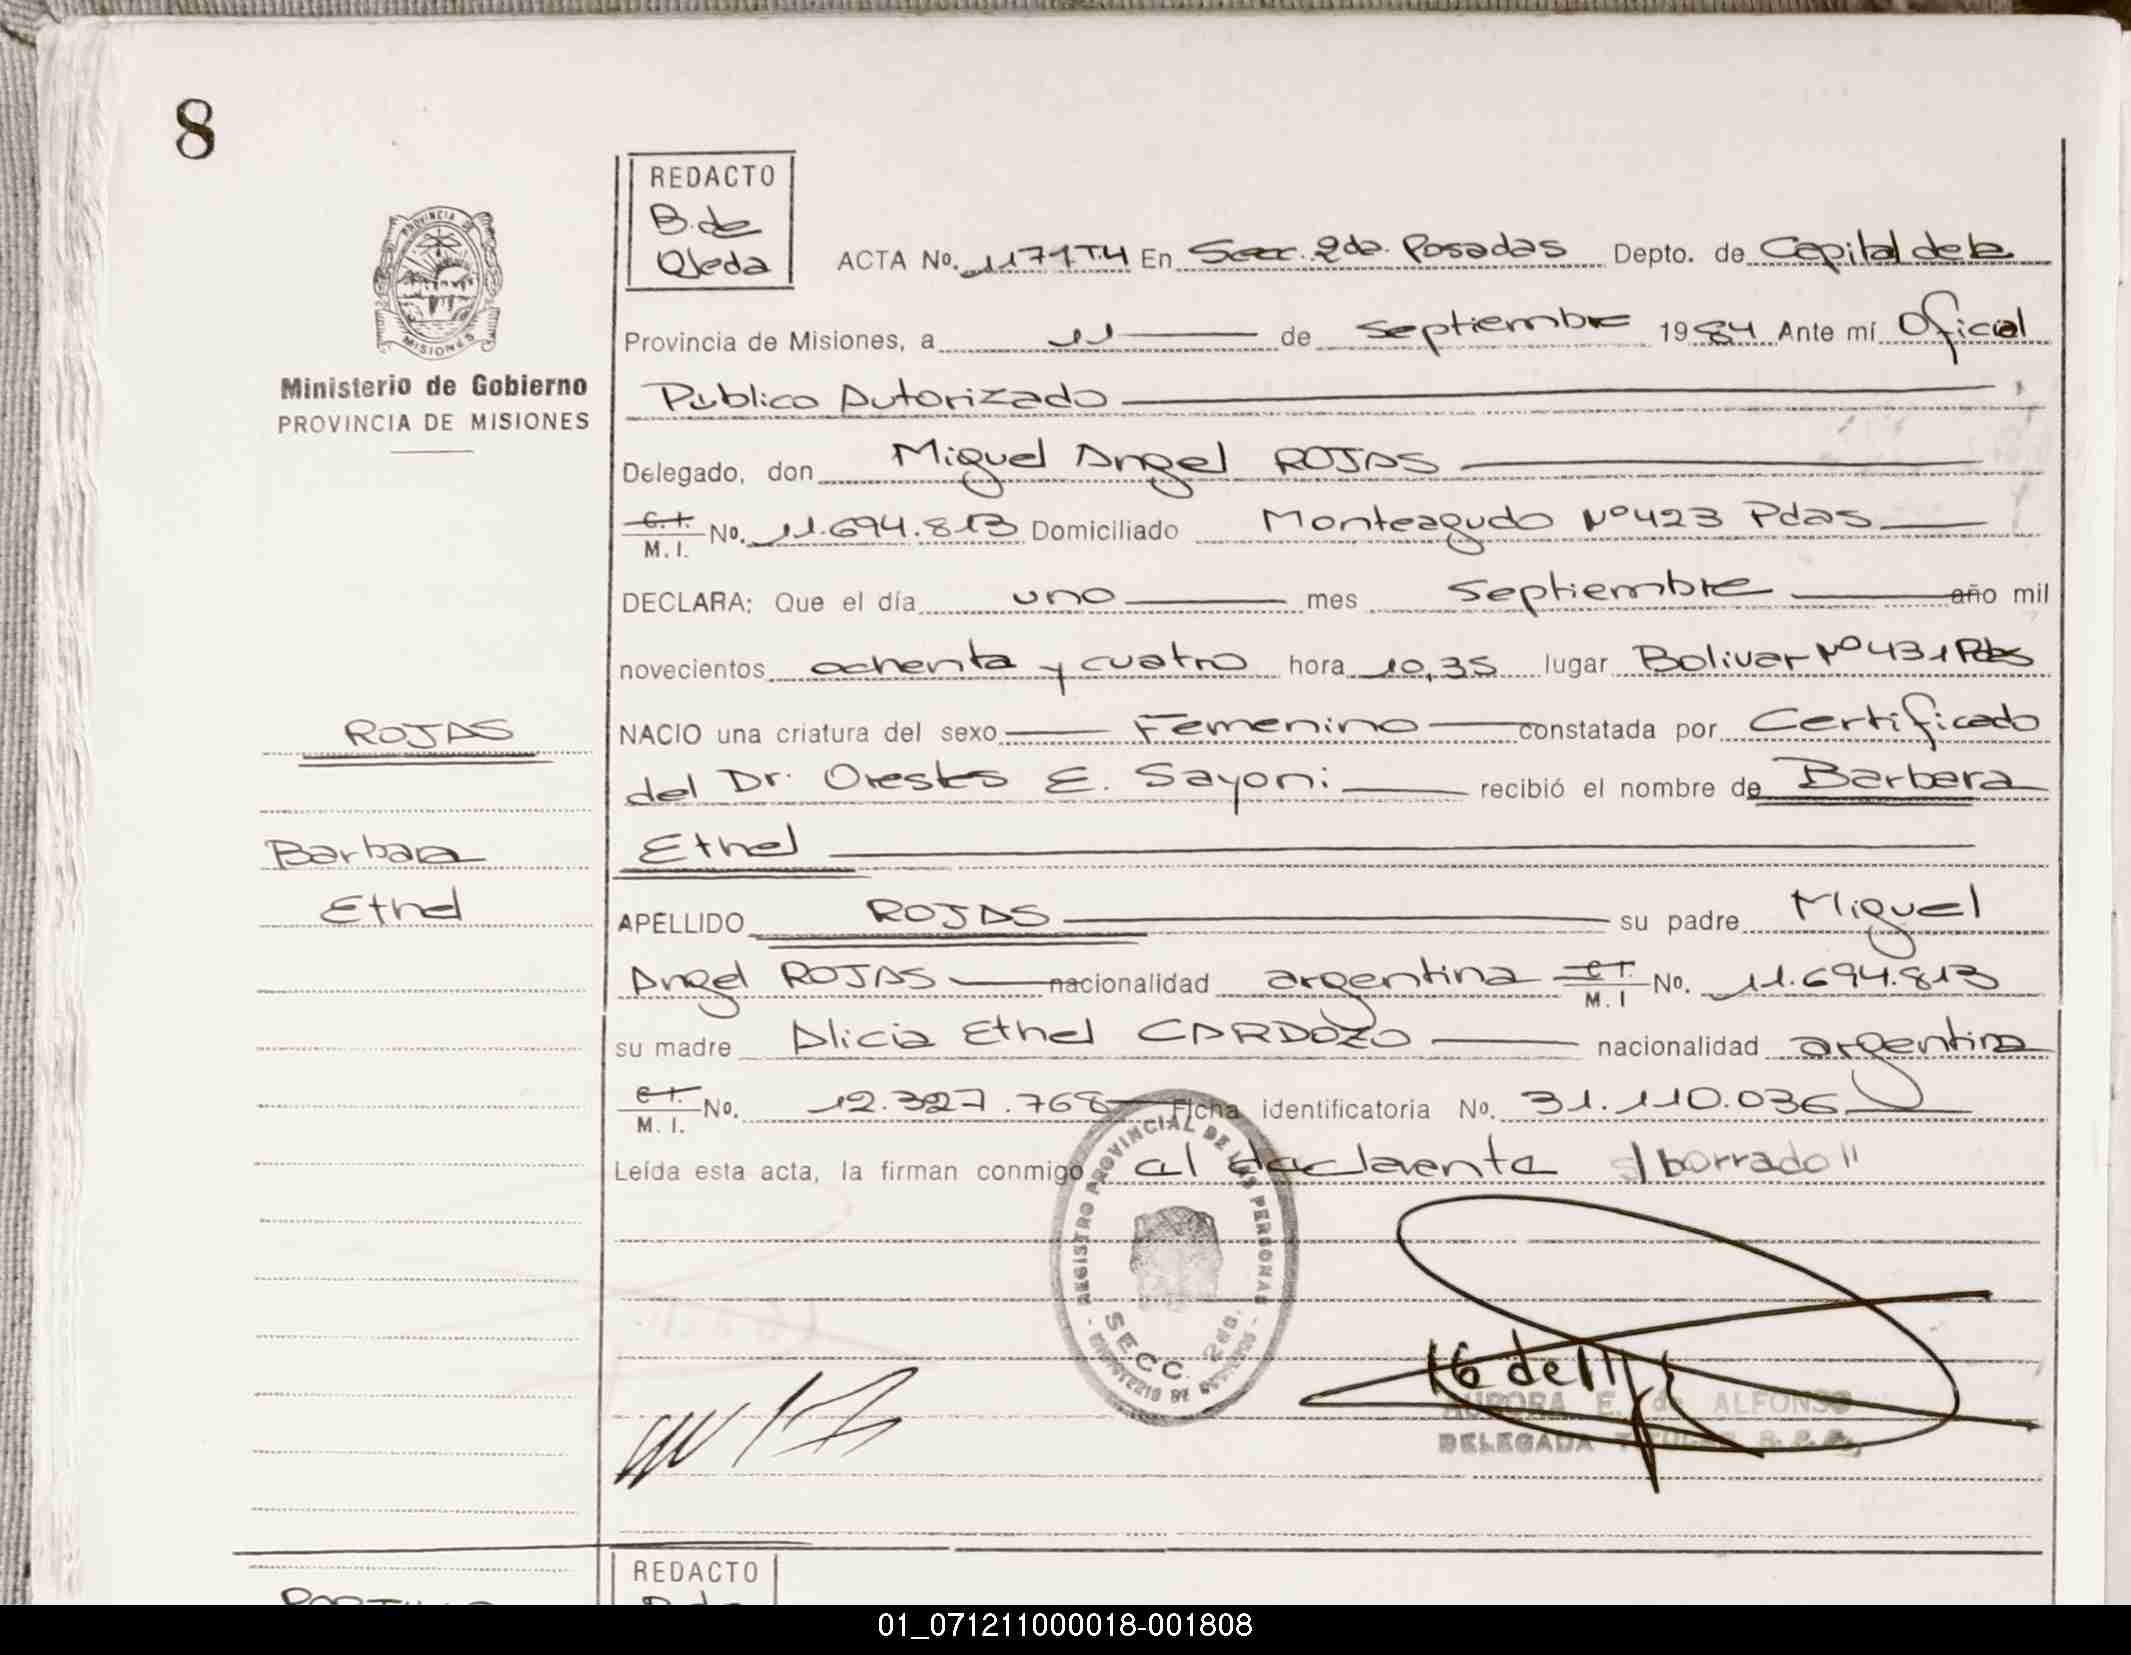 8
REDACTO
B. de
Ojeda
PROVINCIA DE
MISIONES
Ministerio de Gobierno
PROVINCIA DE MISIONES
ACTA No. 1171T.4 En Secc. 2da. Posadas Depto. de Capital de la
Provincia de Misiones, a 11 de septiembre 1984 Ante mí Oficial
Publico Autorizado
Delegado, don Miguel Angel ROJAS
C.I. M.I. No. 11.694.813 Domiciliado Monteagudo Nº 423 Pdas
DECLARA: Que el día uno mes septiembre año mil
novecientos ochenta y cuatro hora 10,35 lugar Bolivar Nº 431 Pdas
ROJAS
NACIO una criatura del sexo Femenino constatada por Certificado
del Dr. Orestes E. Sayoni recibió el nombre de Barbara
Barbara
Ethel
Ethel
APELLIDO ROJAS su padre Miguel
Angel ROJAS nacionalidad argentina C.I. M.I No. 11.694.813
su madre Alicia Ethel CARDOZO nacionalidad argentina
C.I. M.I. No. 12.327.768 Ficha identificatoria No. 31.110.036
Leída esta acta, la firman conmigo al declarente s/borrado"
REGISTRO PROVINCIAL DE LAS PERSONAS
SECC. 2da.
AURORA E. de ALFONSO
DELEGADA
REDACTO
01_071211000018-001808